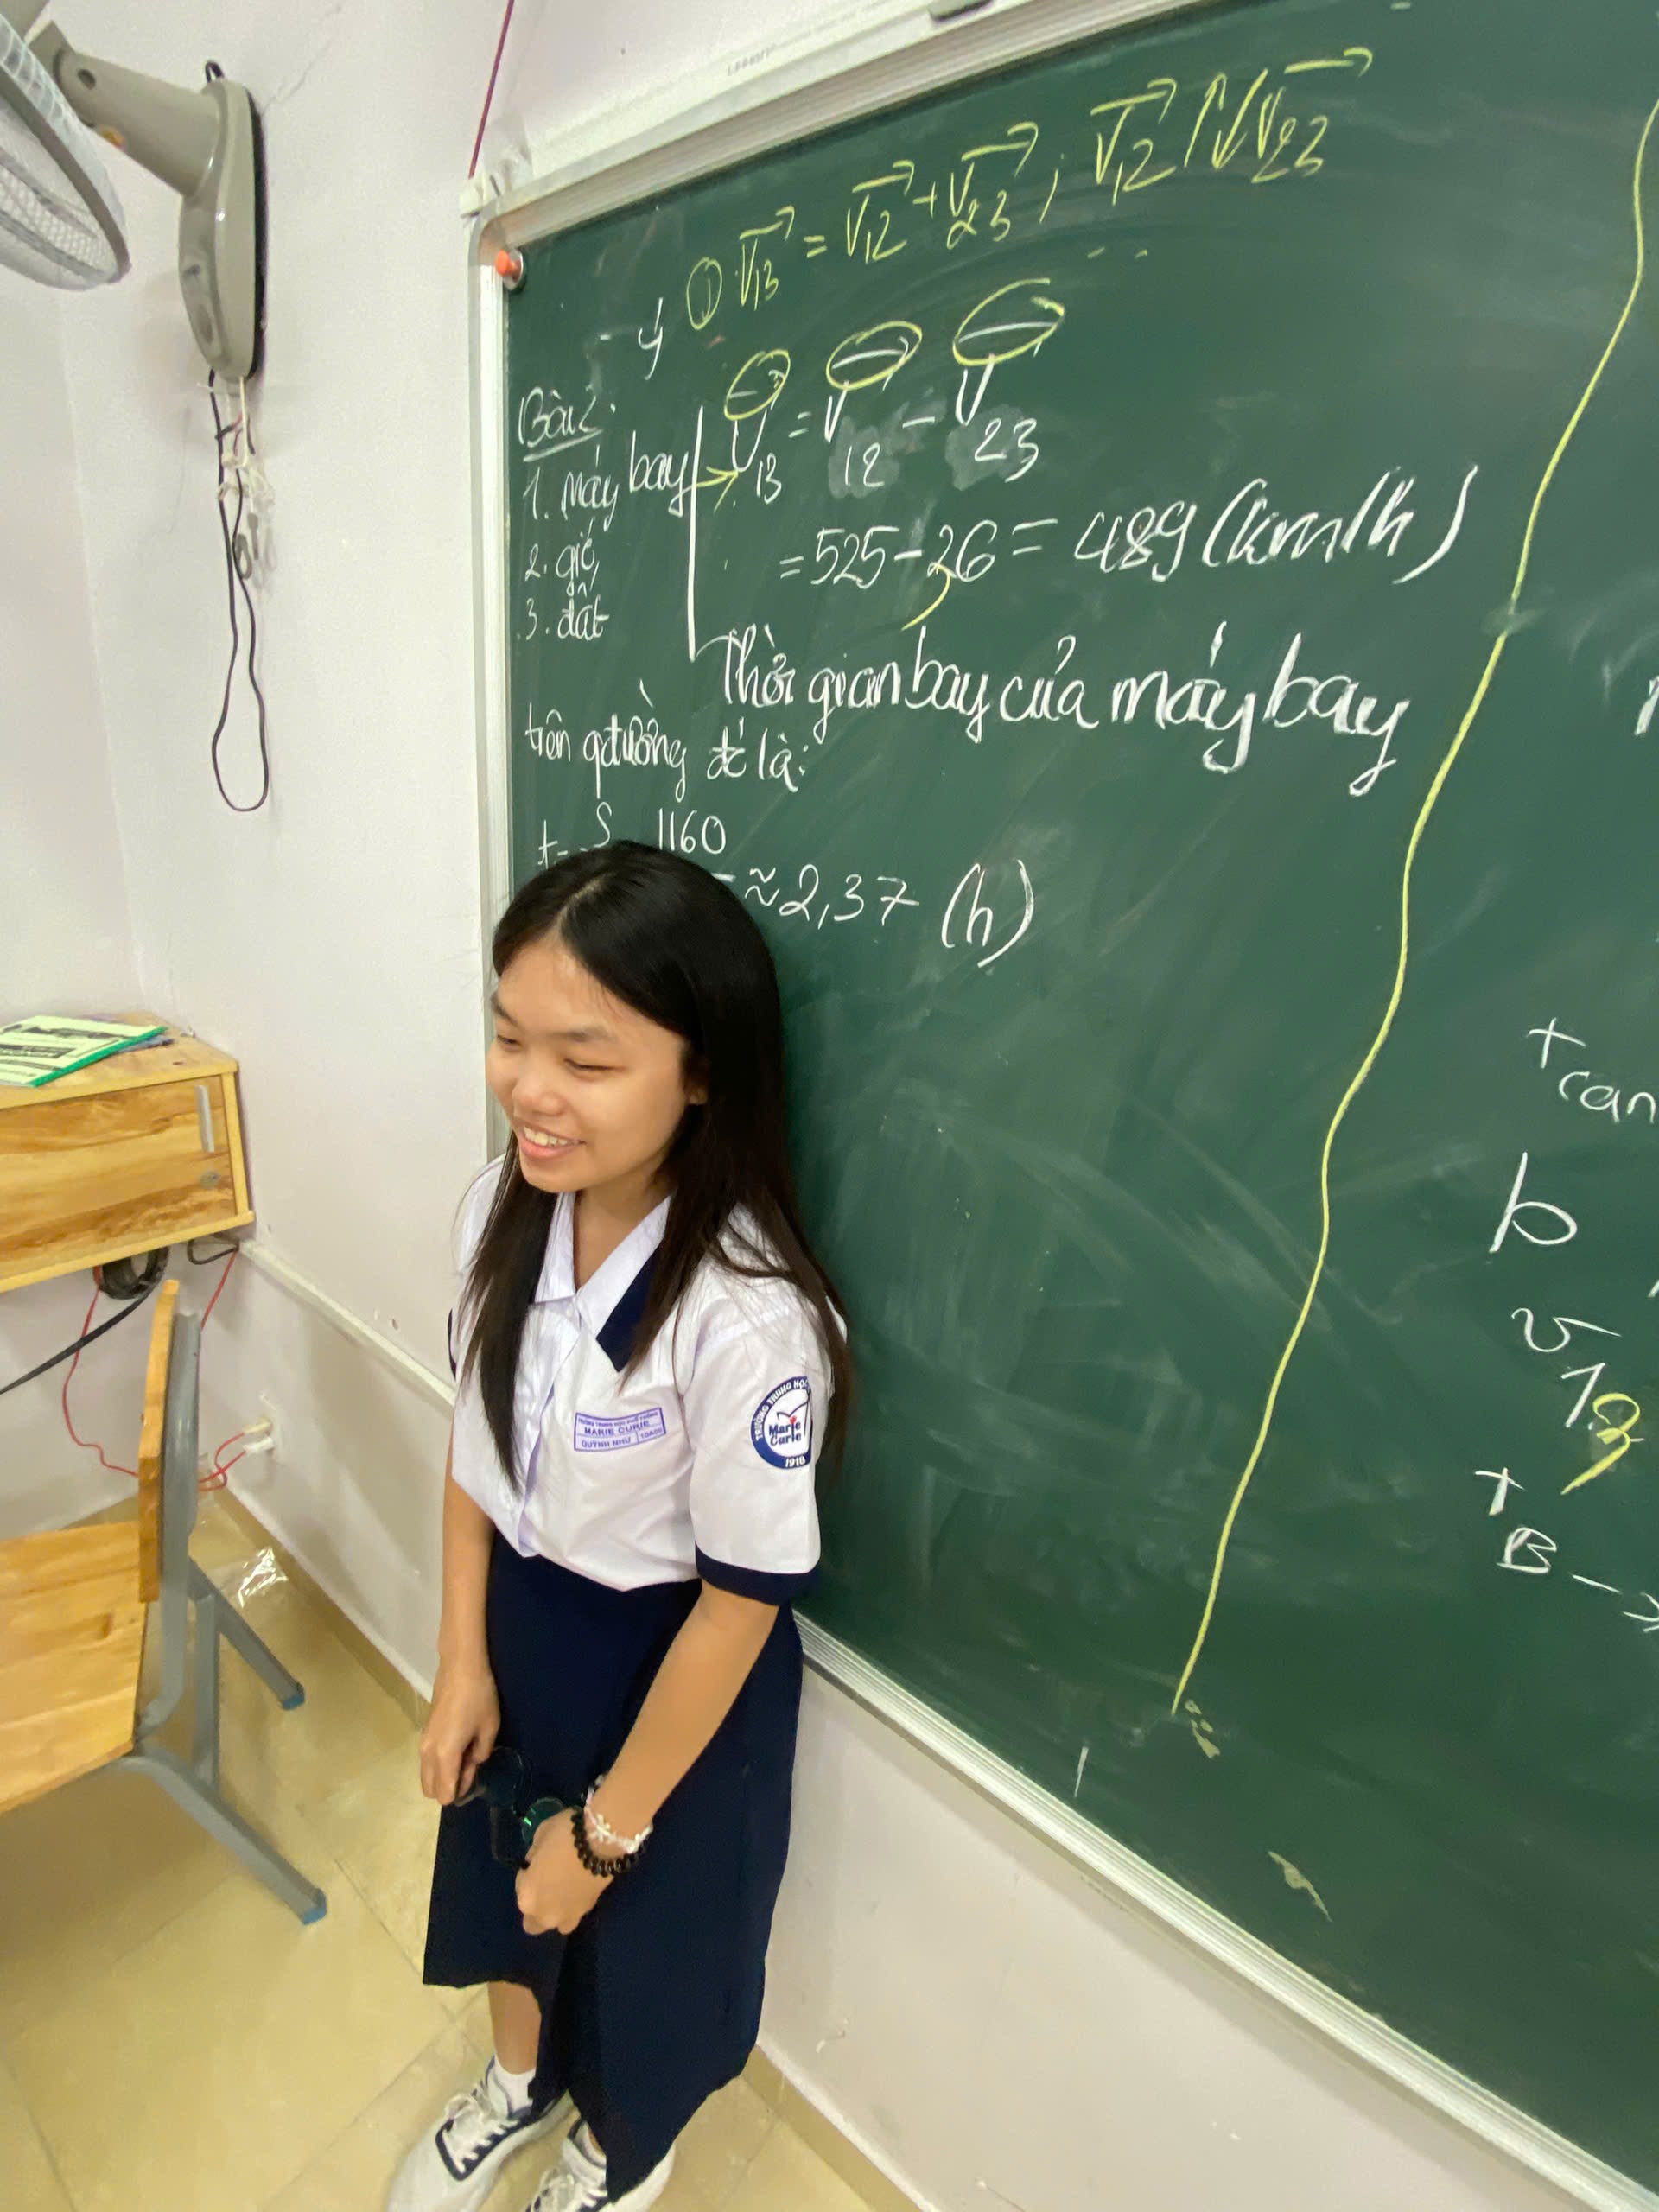 ① V13 = V12 + V23 ; V12 ↑↓ V23
ý
Bài 2:
1. máy bay
2. gió
3. đất
V13 = V12 - V23
= 525 - 36 = 489 (km/h)
Thời gian bay của máy bay
trên qđường đó là:
t = S 1160
≈ 2,37 (h)
+ can
b
v13
+ B →
MARIE CURIE
QUỲNH NHƯ
TRƯỜNG TRUNG HỌC
Marie
Curie
1918